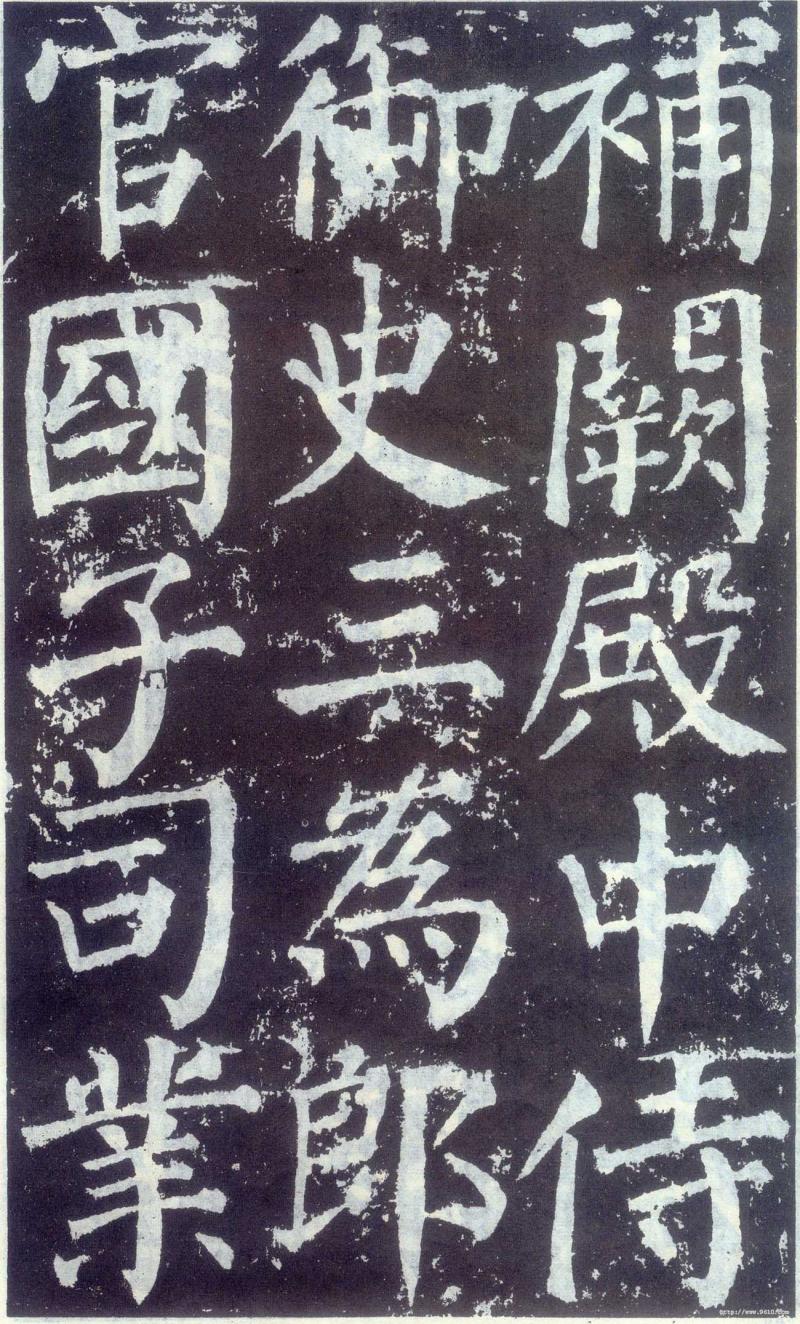 補闕殿中侍
御史三為郎
官國子司業
http://www.9610.com